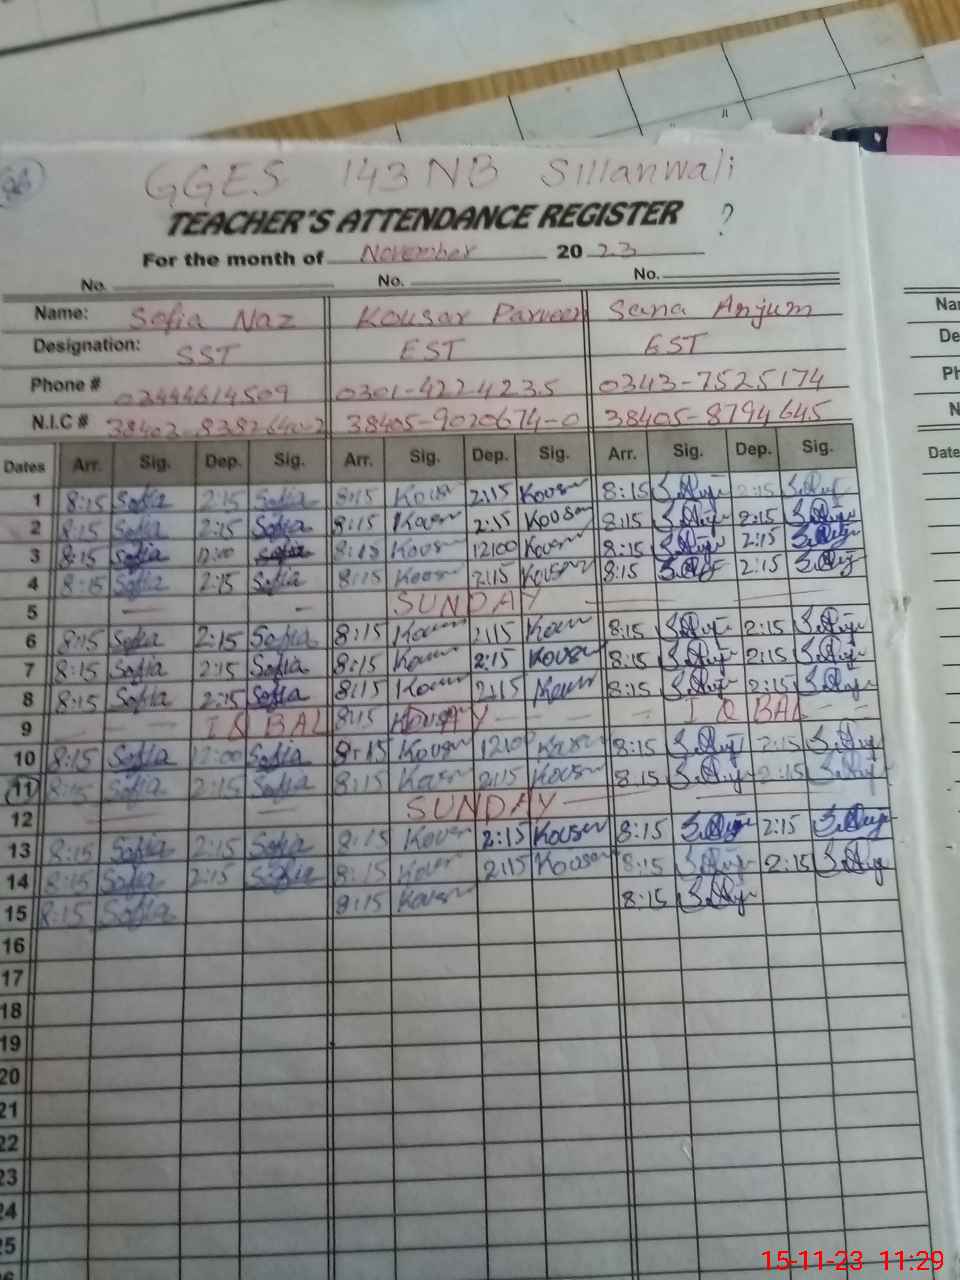 GGES 143 NB Sillanwali
TEACHER'S ATTENDANCE REGISTER ?
For the month of November 20 23
No. No. No.
Name: Sofia Naz Kousar Parveen Sana Anjum
Designation: SST EST EST
Phone # 03444614509 0301-4224235 0343-7525174
N.I.C # 38403-8382640-2 38405-9020674-0 38405-8794645
Dates Arr. Sig. Dep. Sig. Arr. Sig. Dep. Sig. Arr. Sig. Dep. Sig.
1 8:15 Sofia 2:15 Sofia 8:15 Kousar 2:15 Kousar 8:15 S.Anj 2:15 S.Anj
2 8:15 Sofia 2:15 Sofia 8:15 Kousar 2:15 Kousar 8:15 S.Anj 2:15 S.Anj
3 8:15 Sofia 12:00 Sofia 8:15 Kousar 12:00 Kousar 8:15 S.Anj 2:15 S.Anj
4 8:15 Sofia 2:15 Sofia 8:15 Kousar 2:15 Kousar 8:15 S.Anj 2:15 S.Anj
5 SUNDAY
6 8:15 Sofia 2:15 Sofia 8:15 Kousar 2:15 Kousar 8:15 S.Anj 2:15 S.Anj
7 8:15 Sofia 2:15 Sofia 8:15 Kousar 2:15 Kousar 8:15 S.Anj 2:15 S.Anj
8 8:15 Sofia 2:15 Sofia 8:15 Kousar 2:15 Kousar 8:15 S.Anj 2:15 S.Anj
9 IQBAL 8:15 DAY IQBAL
10 8:15 Sofia 12:00 Sofia 8:15 Kousar 12:0 Kousar 8:15 S.Anj 2:15 S.Anj
11 8:15 Sofia 2:15 Sofia 8:15 Kousar 2:15 Kousar 8:15 S.Anj 2:15 S.Anj
12 SUNDAY
13 8:15 Sofia 2:15 Sofia 8:15 Kousar 2:15 Kousar 8:15 S.Anj 2:15 S.Anj
14 8:15 Sofia 2:15 Sofia 8:15 Kousar 2:15 Kousar 8:15 S.Anj 2:15 S.Anj
15 8:15 Sofia 8:15 Kousar 8:15 S.Anj
16
17
18
19
20
21
22
23
24
25
Date
15-11-23 11:29